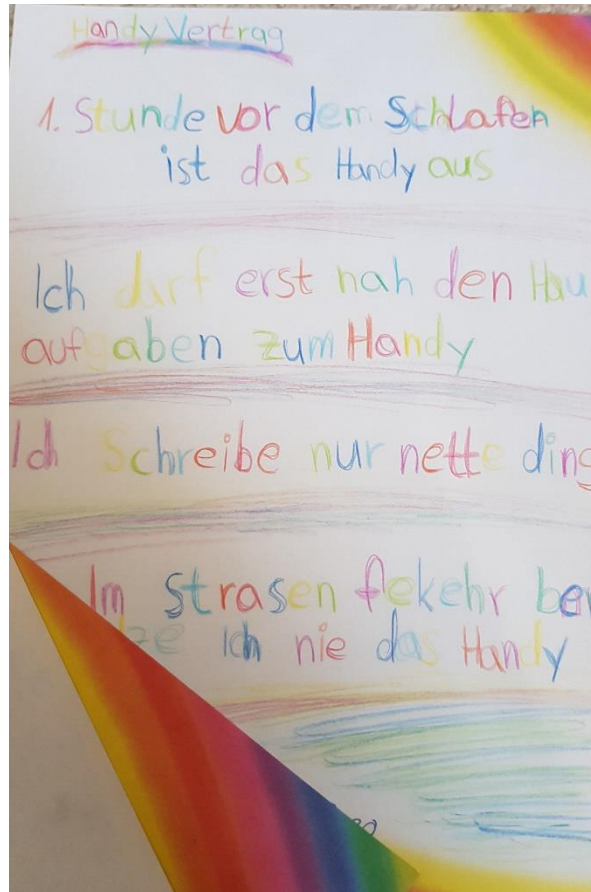 Handy Vertrag
1. Stunde vor dem Schlafen
ist das Handy aus
Ich darf erst nah den Hau
aufgaben zum Handy
Ich Schreibe nur nette ding
Im Strasen fekehr be
ze Ich nie das Handy